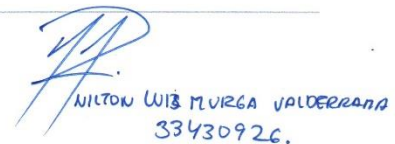 NILTON LUIS MURGA VALDERRAMA
33430926.